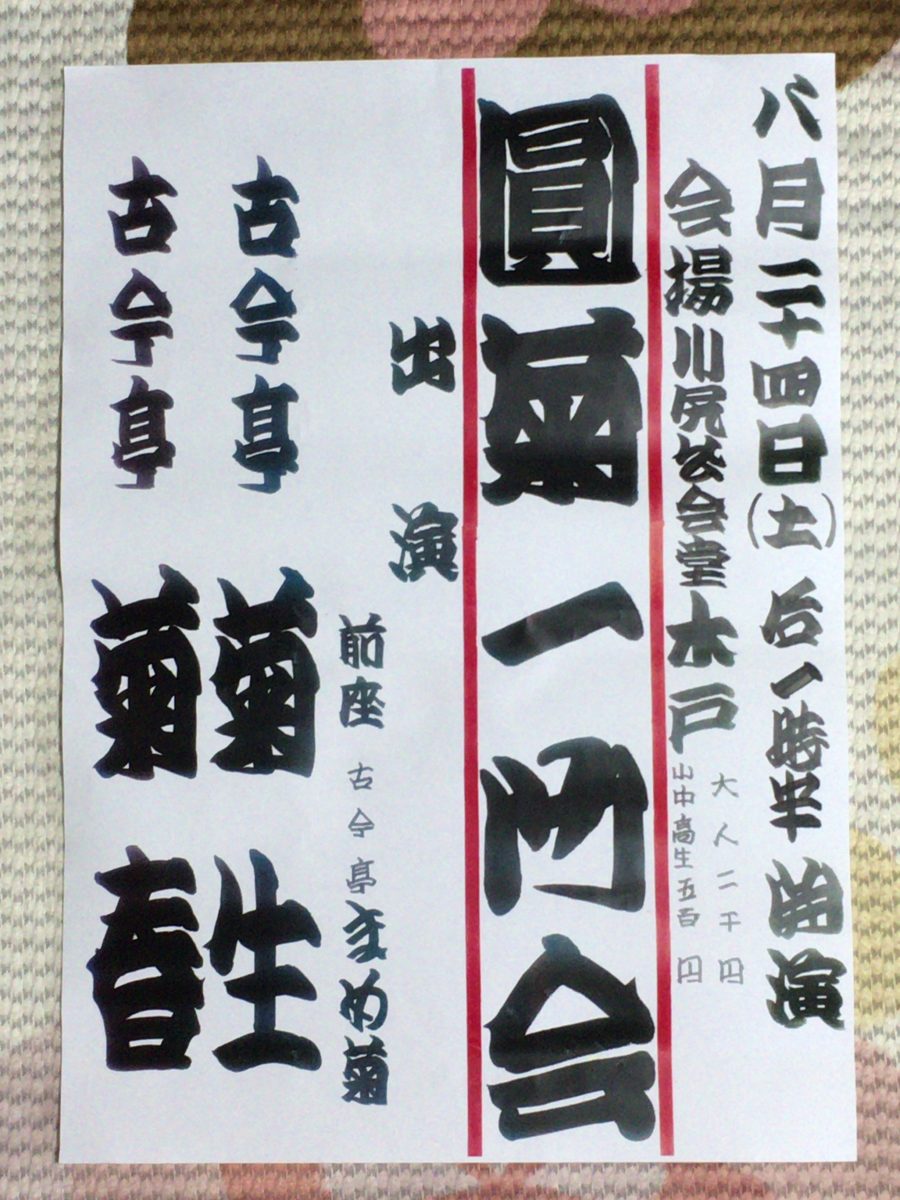 八月二十四日(土) 后一時半 開演
会場川尻公会堂木戸
大人二千円
小中高生五百円
圓菊一門会
出演
前座 古今亭まめ菊
古今亭 菊生
古今亭 菊春